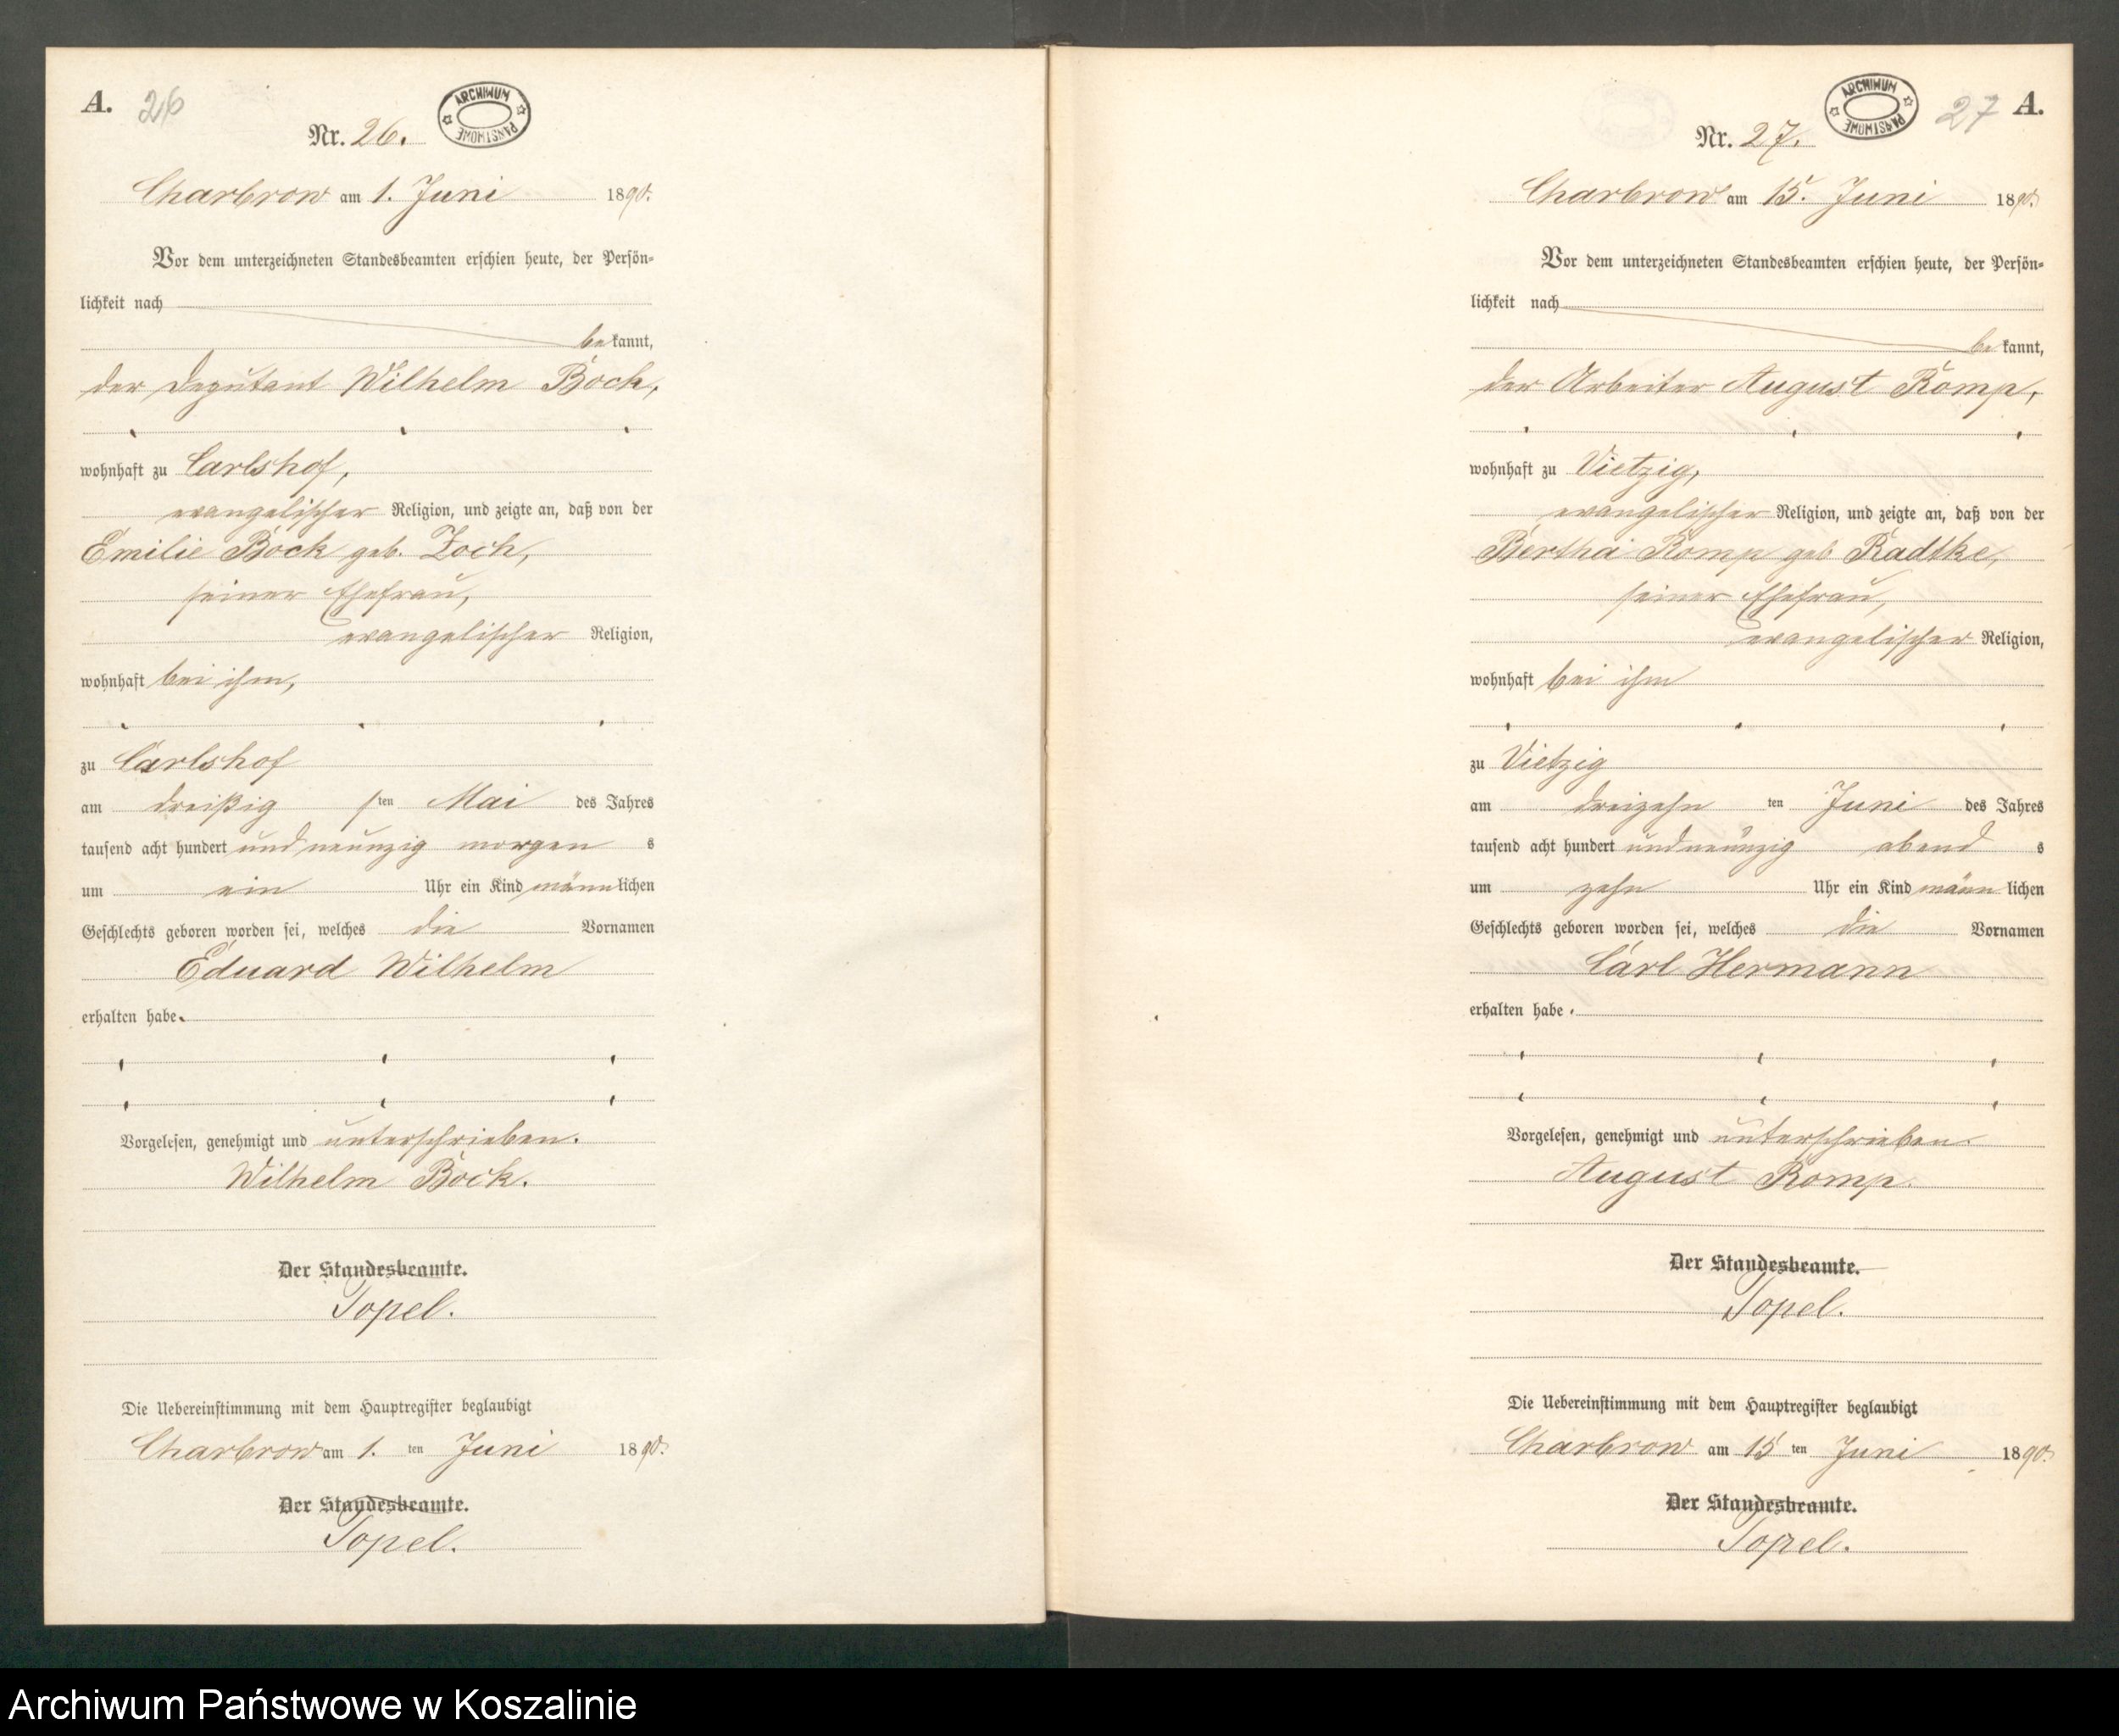 A. 26
ARCHIWUM PAŃSTWOWE
Nr. 26.
Charbrow am 1. Juni 1890.
Vor dem unterzeichneten Standesbeamten erschien heute, der Persön-
lichkeit nach
bekannt,
der Deputant Wilhelm Bock,
wohnhaft zu Carlshof,
evangelischer Religion, und zeigte an, daß von der
Emilie Bock geb. Zoch,
seiner Ehefrau,
evangelischer Religion,
wohnhaft bei ihm,
zu Carlshof
am dreißigsten Mai des Jahres
tausend acht hundert und neunzig morgens
um ein Uhr ein Kind männlichen
Geschlechts geboren worden sei, welches die Vornamen
Eduard Wilhelm
erhalten habe.
Vorgelesen, genehmigt und unterschrieben.
Wilhelm Bock.
Der Standesbeamte.
Topel.
Die Uebereinstimmung mit dem Hauptregister beglaubigt
Charbrow am 1. ten Juni 1890.
Der Standesbeamte.
Topel.
ARCHIWUM PAŃSTWOWE
27 A.
Nr. 27.
Charbrow am 15. Juni 1890.
Vor dem unterzeichneten Standesbeamten erschien heute, der Persön-
lichkeit nach
bekannt,
der Arbeiter August Romp,
wohnhaft zu Vietzig,
evangelischer Religion, und zeigte an, daß von der
Bertha Romp geb. Radtke,
seiner Ehefrau,
evangelischer Religion,
wohnhaft bei ihm
zu Vietzig
am dreizehn ten Juni des Jahres
tausend acht hundert und neunzig abend s
um zehn Uhr ein Kind männlichen
Geschlechts geboren worden sei, welches die Vornamen
Carl Hermann
erhalten habe.
Vorgelesen, genehmigt und unterschrieben.
August Romp.
Der Standesbeamte.
Topel.
Die Uebereinstimmung mit dem Hauptregister beglaubigt
Charbrow am 15 ten Juni 1890.
Der Standesbeamte.
Topel.
Archiwum Państwowe w Koszalinie